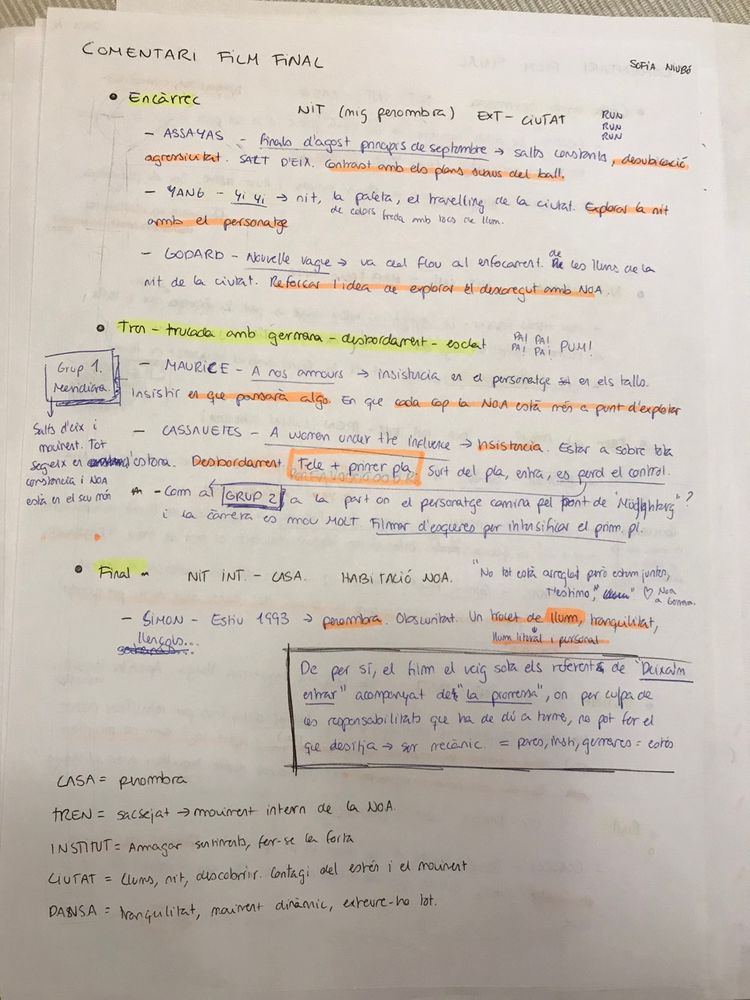 COMENTARI FILM FINAL
SOFIA NIUBÓ
• Encàrrec
NIT (mig penombra) EXT - CIUTAT
RUN
RUN
RUN
- ASSAYAS - Finals d'agost principis de septembre → salts constants, desubicació
agressivitat. SALT D'EIX. Contrast amb els plans suaus del ball.
- YANG - Yi Yi → nit, la paleta, el travelling de la ciutat. Explorar la nit
de colors freda amb tocs de llum.
amb el personatge
- GODARD - Nouvelle vague → va del flou al enfocament. de les llums de la
nit de la ciutat. Reforçar l'idea de explorar el desconegut amb NOA.
• Tren - trucada amb germana - desbordament - esclat
PA! PA!
PA! PA! PUM!
Grup 1.
Mendiara.
- MAURICE - A nos amours → insistencia en el personatge en els talls.
Insistir en que passarà algo. En que cada cop la NOA està més a punt d'explotar
Salts d'eix i
moviment. Tot
segueix en
constancia i NOA
està en el seu món
- CASSAVETES - A women under the influence → Insistencia. Estar a sobre tota
l'estona. Desbordament. Tele + primer pla. Surt del pla, entra, es perd el control.
- Com al GRUP 2 a la part on el personatge camina pel pont de ?
i la càmera es mou MOLT. Filmar d'esquenes per intensificar el prim. pl.
• Final - NIT INT. - CASA. HABITACIÓ NOA.
"No tot està arreglat però estem juntes,
t'estimo," ♡ Noa
a Gemma.
- SIMON - Estiu 1993 → penombra. Obscuritat. Un trocet de llum, tranquilitat,
llum literal i personal
llençols...
De per sí, el film el veig sota els referents de "Deixa'm
entrar" acompanyat de "la promesa", on per culpa de
les responsabilitats que ha de dú a terme, no pot fer el
que desitja → ser mecànic. = pares, insti, germanes = estrés
CASA = penombra
TREN = sacsejat → moviment intern de la NOA.
INSTITUT = Amagar sentiments, fer-se la forta
CIUTAT = Llums, nit, descobrir. Contagi del estrés i el moviment
DANSA = tranquilitat, moviment dinàmic, extreure-ho tot.